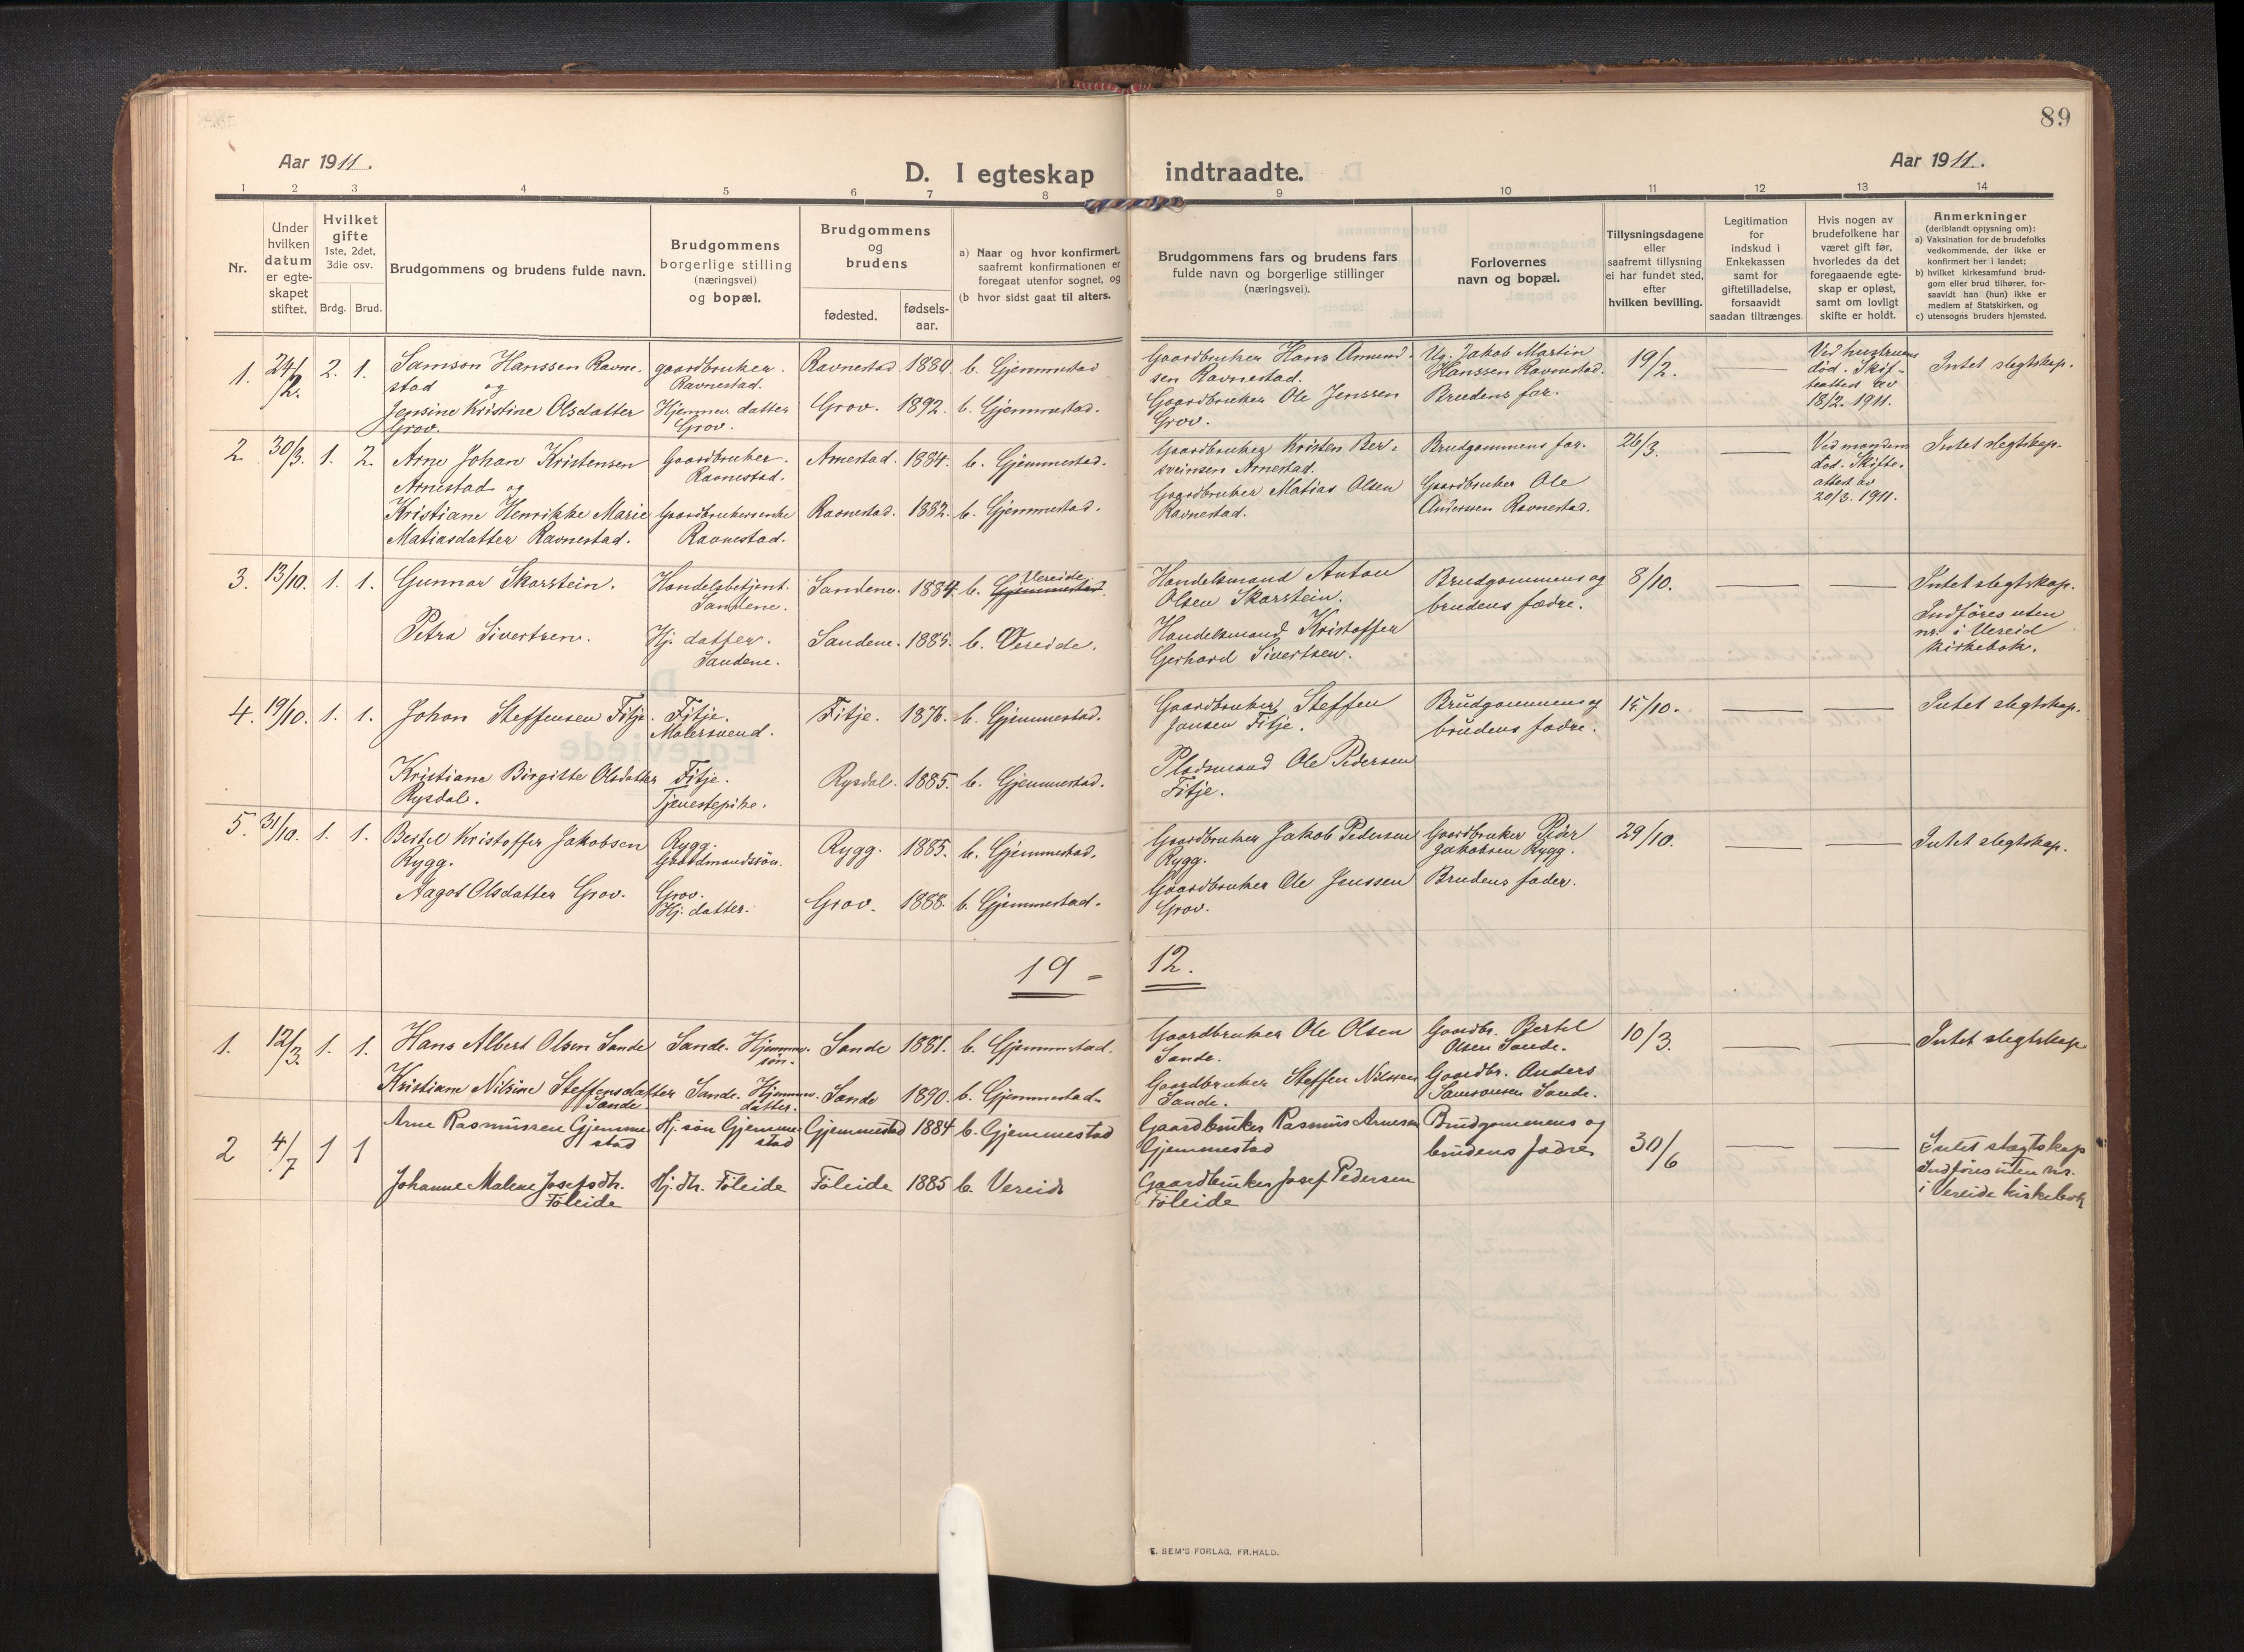 89
Aar 1911.
D. I egteskap indtraadte.
Aar 1911.
1 2 3 4 5 6 7 8 9 10 11 12 13 14
Nr.
Under
hvilken
datum
er egte-
skapet
stiftet.
Hvilket
gifte
1ste, 2det,
3die osv.
Brdg. Brud.
Brudgommens og brudens fulde navn.
Brudgommens
borgerlige stilling
(næringsvei)
og bopæl.
Brudgommens
og
brudens
fødested.
fødsels-
aar.
a) Naar og hvor konfirmert,
saafremt konfirmationen er
foregaat utenfor sognet, og
(b hvor sidst gaat til alters.
Brudgommens fars og brudens fars
fulde navn og borgerlige stillinger
(næringsvei).
Forlovernes
navn og bopæl.
Tillysningsdagene
eller
saafremt tillysning
ei har fundet sted,
efter
hvilken bevilling.
Legitimation
for
indskud i
Enkekassen
samt for
giftetilladelse,
forsaavidt
saadan tiltrænges.
Hvis nogen av
brudefolkene har
været gift før,
hvorledes da det
foregaaende egte-
skap er opløst,
samt om lovligt
skifte er holdt.
Anmerkninger
(deriblandt opjysning om):
a) Vaksination for de brudefolks
vedkommende, der ikke er
konfirmert her i landet;
b) hvilket kirkesamfund brud-
gom eller brud tilhører, for-
saavidt han (hun) ikke er
medlem af Statskirken, og
c) utensogns bruders hjemsted.
1. 24/2. 2. 1.
Samson Hanssen Ravne-
stad og
Jensine Kristine Olsdatter
Grov.
gaardbruker.
Ravnestad.
Hjemmev. datter
Grov.
Ravnestad. 1880. b. Gjemmestad
Grov. 1892. b. Gjemmestad.
Gaardbruker Hans Amund-
sen Ravnestad.
Gaardbruker Ole Jenssen
Grov.
Ug. Jakob Martin
Hanssen Ravnestad.
Brudens far.
19/2.
Ved hustruens
død. Skif-
teattest av
18/2. 1911.
Intet slegtskap.
2. 30/3. 1. 2.
Arne Johan Kristensen
Arnestad og
Kristiane Henrikke Marie
Matiasdatter Ravnestad.
Gaardbruker.
Ravnestad.
Gaardbrukerenke
Ravnestad.
Arnestad. 1884. b. Gjemmestad.
Ravnestad. 1882. b. Gjemmestad.
Gaardbruker Kristen Ber-
sveinsen Arnestad.
Gaardbruker Matias Olsen
Ravnestad.
Brudgommens far.
Gaardbruker Ole
Anderssen Ravnestad.
26/3.
Ved mandens
død. Skifte-
attest av
20/3. 1911.
Intet slegtskap.
3. 13/10. 1. 1.
Gunnar Skarstein.
Petra Sivertsen.
Handelsbetjent.
Sandene.
Hj. datter.
Sandene.
Sandene. 1884. b. Gjemmestad. Vereide
Sandene. 1885. b. Vereide.
Handelsmand Anton
Olsen Skarstein.
Handelsmand Kristoffer
Gerhard Sivertsen.
Brudgommens og
brudens fædre.
8/10.
Intet slegtskap.
Indføres uten
nr. i Vereid
kirkebok.
4. 19/10. 1. 1.
Johan Steffensen Fitje.
Kristiane Birgitte Olsdatter
Rysdal.
Fitje.
Malersvend.
Fitje.
Tjenestepike.
Fitje. 1876. b. Gjemmestad.
Rysdal. 1885. b. Gjemmestad.
Gaardbruker Steffen
Jansen Fitje.
Pladsmand Ole Pedersen
Fitje.
Brudgommens og
brudens fædre.
15/10.
Intet slegtskap.
5. 31/10. 1. 1.
Bertel Kristoffer Jakobsen
Rygg.
Aagot Olsdatter Grov.
Rygg.
Gaardmandssøn.
Grov.
Hj. datter.
Rygg. 1885. b. Gjemmestad.
Grov. 1888. b. Gjemmestad.
Gaardbruker Jakob Pedersen
Rygg.
Gaardbruker Ole Jenssen
Grov.
Gaardbruker Peder
Jakobsen Rygg.
Brudens fader.
29/10.
Intet slegtskap.
19 - 12.
1. 12/3. 1. 1.
Hans Albert Olsen Sande
Kristiane Nilsine Steffensdatter
Sande
Sande. Hjemmev.
søn.
Sande. Hjemmev.
datter.
Sande 1881. b. Gjemmestad.
Sande 1890. b. Gjemmestad.
Gaardbruker Ole Olsen
Sande.
Gaardbruker Steffen Nilssen
Sande.
Gaardbr. Bertel
Olsen Sande.
Gaardbr. Anders
Samsonsen Sande.
10/3.
Intet slegtskap
2 4/7 1 1
Arne Rasmussen Gjemme-
stad
Johanne Malene Josefsdtr.
Föleide
Hj. søn Gjemme-
stad
Hj. dtr. Föleide
Gjemmestad 1884 b. Gjemmestad
Föleide 1885 b. Vereide
Gaardbruker Rasmus Arnesen
Gjemmestad
Gaardbruker Josef Pedersen
Föleide
Brudgommens og
brudens fædre
30/6
Intet slegtskap
Indføres uten nr.
i Vereide kirkebok
E. SEM'S FORLAG, FR.HALD.